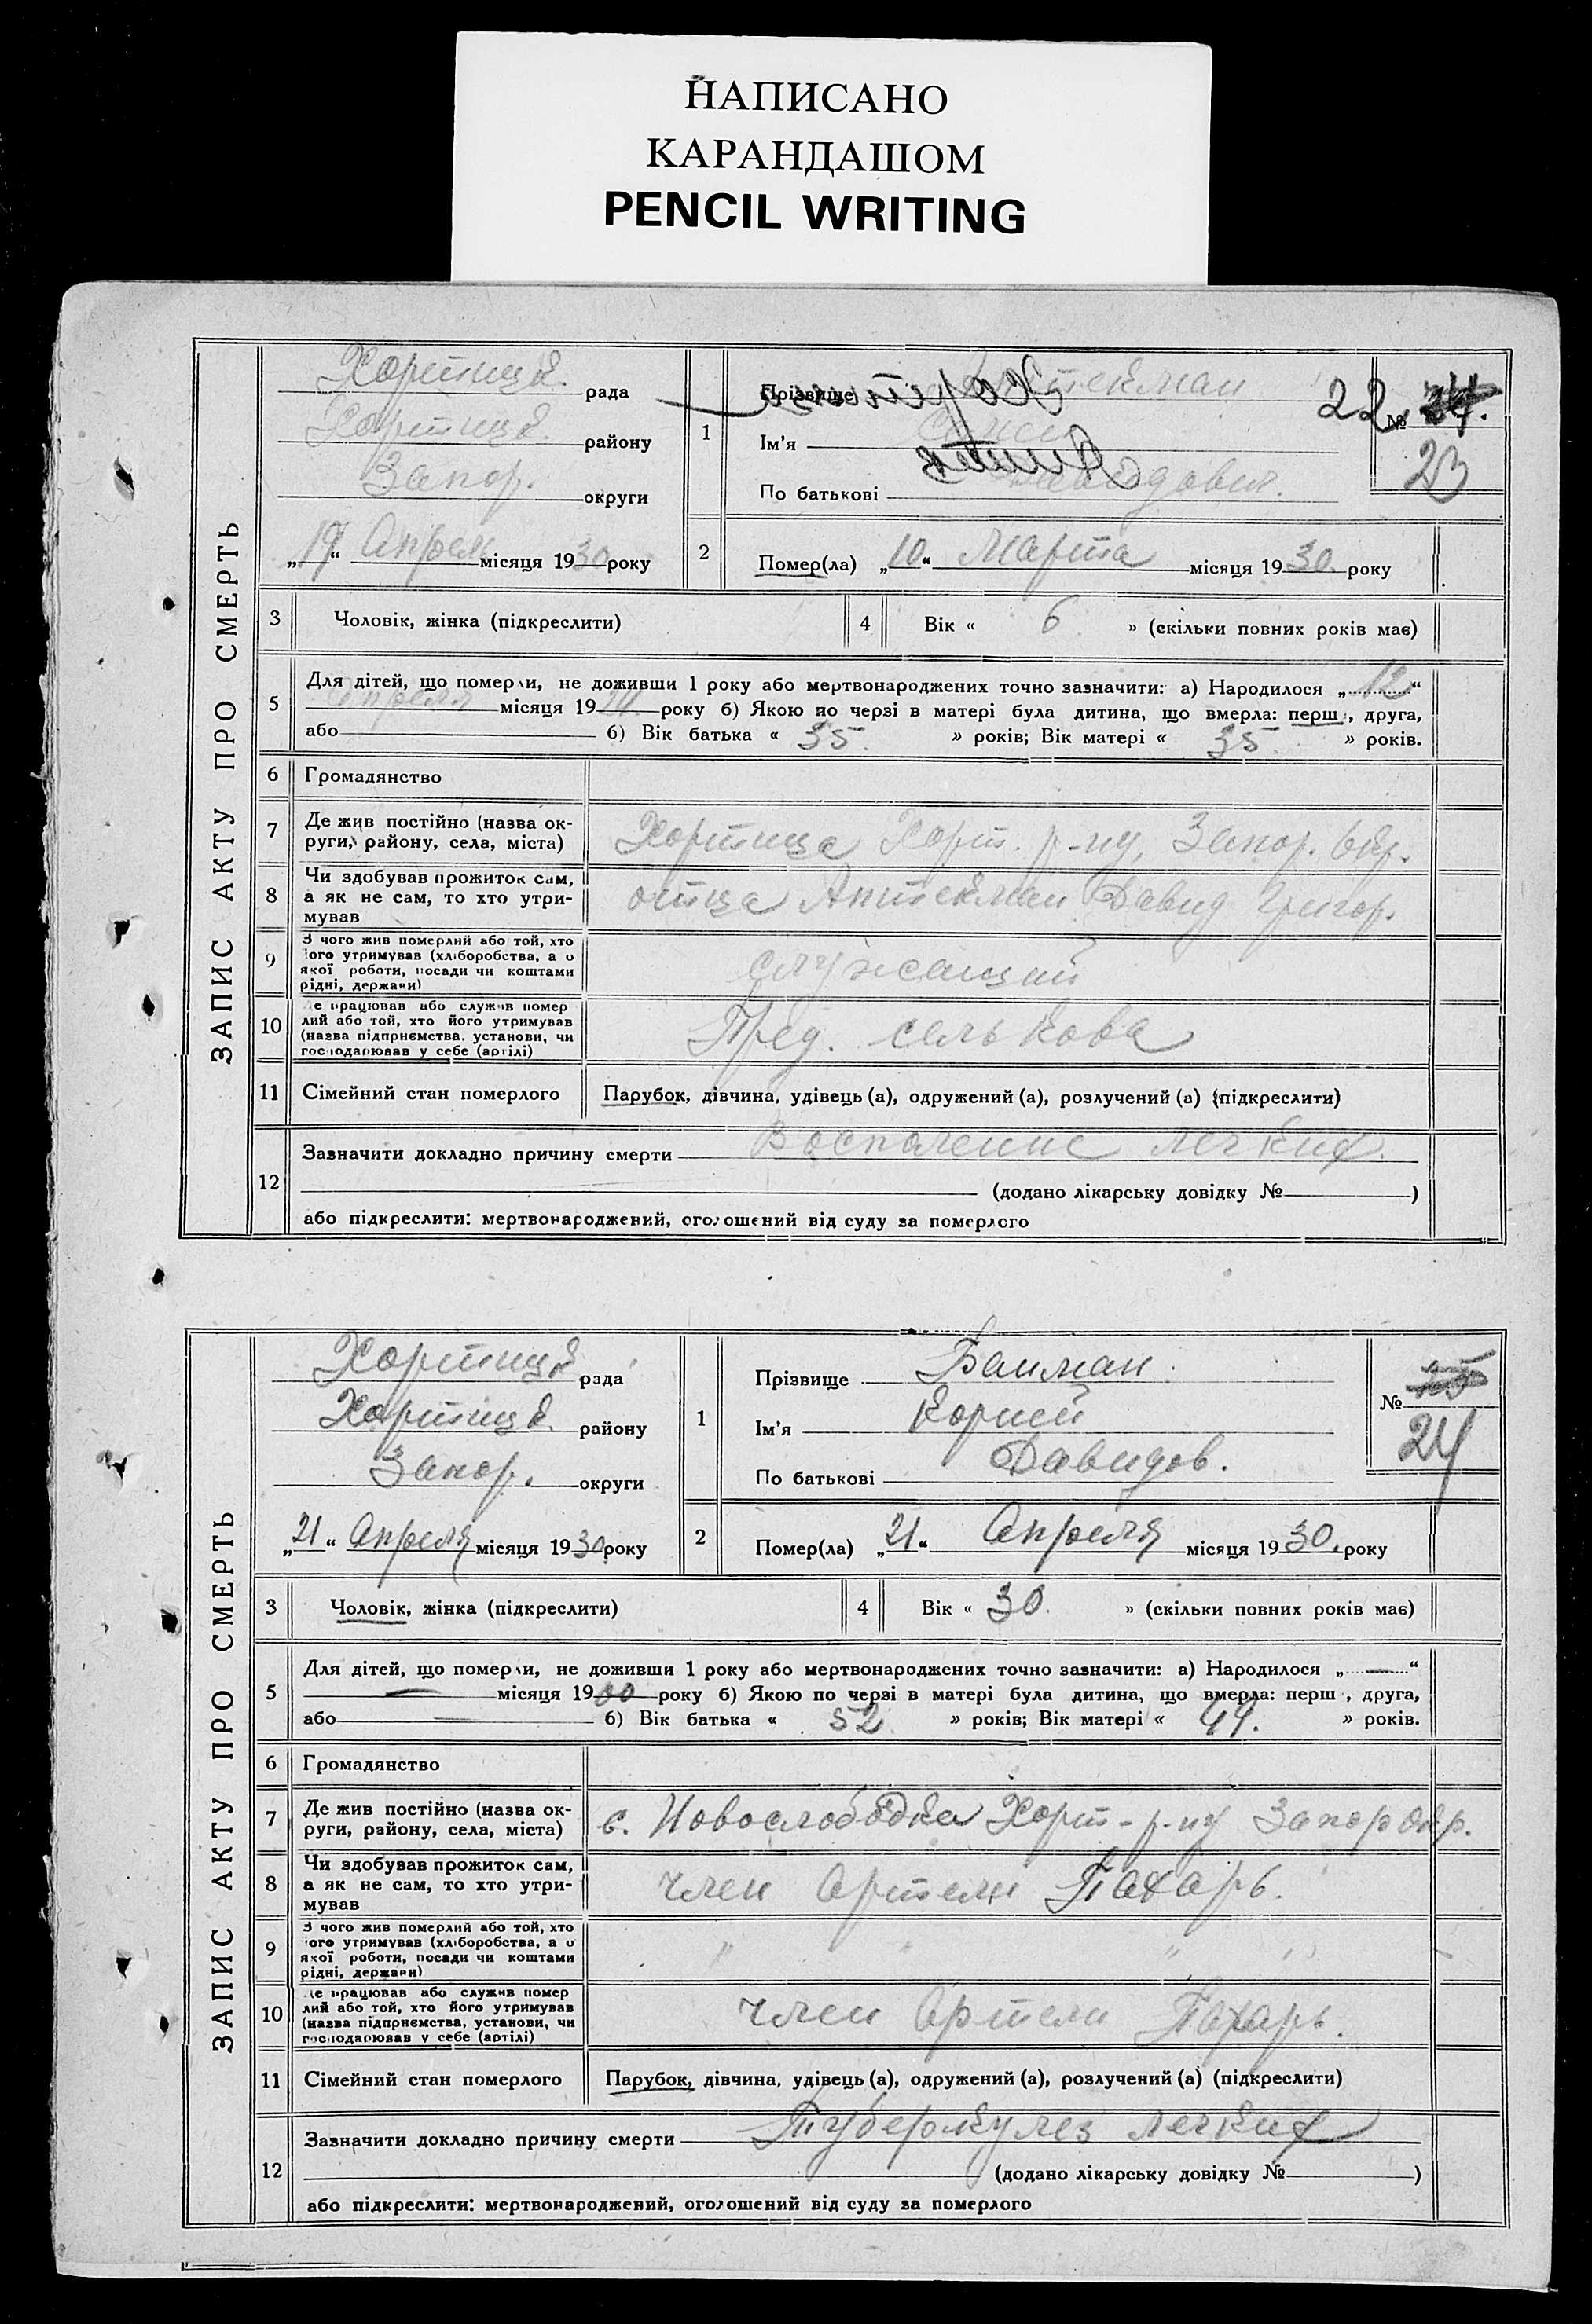 НАПИСАНО
КАРАНДАШОМ
PENCIL WRITING
ЗАПИС АКТУ ПРО СМЕРТЬ
Хортицк. рада
Хортицк. району
Запор. округи
„19“ Апреля місяця 1930 року
1
Прізвище Аптекман
Ім'я
По батькові Давидович.
22 №
23
2
Помер(ла) „10“ Марта місяця 1930. року
3 Чоловік, жінка (підкреслити)
4 Вік « 6 » (скільки повних років має)
5
Для дітей, що померли, не доживши 1 року або мертвонароджених точно зазначити: а) Народилося „12“
Апреля місяця 1924. року б) Якою по черзі в матері була дитина, що вмерла: перш, друга,
або б) Вік батька « 35. » років; Вік матері « 35. » років.
6 Громадянство
7 Де жив постійно (назва ок-
руги, району, села, міста)
Хортица Хорт. р-ну, Запор. окр.
8 Чи здобував прожиток сам,
а як не сам, то хто утри-
мував
отца Аптекман Давид Григор.
9 З чого жив померлий або той, хто
його утримував (хліборобства, а о
якої роботи, посади чи коштами
рідні, держави)
служащий
10 Де працював або служив помер
лий або той, хто його утримував
(назва підприємства, установи, чи
господарював у себе (артілі)
Пред. сель кова
11 Сімейний стан померлого
Парубок, дівчина, удівець (а), одружений (а), розлучений (а) (підкреслити)
12
Зазначити докладно причину смерти Воспаление легких.
(додано лікарську довідку № )
або підкреслити: мертвонароджений, оголошений від суду за померлого
ЗАПИС АКТУ ПРО СМЕРТЬ
Хортицк. рада
Хортицк. району
Запор. округи
„21“ Апреля місяця 1930 року
1
Прізвище Бауман
Ім'я Корней
По батькові Давидов.
№
24
2
Помер(ла) „21“ Апреля місяця 1930. року
3 Чоловік, жінка (підкреслити)
4 Вік « 30. » (скільки повних років має)
5
Для дітей, що померли, не доживши 1 року або мертвонароджених точно зазначити: а) Народилося „—“
— місяця 1900 року б) Якою по черзі в матері була дитина, що вмерла: перш, друга,
або — б) Вік батька « 52. » років; Вік матері « 49. » років.
6 Громадянство
7 Де жив постійно (назва ок-
руги, району, села, міста)
с. Новослободка Хорт-р-ну Запор окр.
8 Чи здобував прожиток сам,
а як не сам, то хто утри-
мував
член Артели Пахарь.
9 З чого жив померлий або той, хто
його утримував (хліборобства, а о
якої роботи, посади чи коштами
рідні, держави)
" " " "
10 Де працював або служив помер
лий або той, хто його утримував
(назва підприємства, установи, чи
господарював у себе (артілі)
член Артели Пахарь.
11 Сімейний стан померлого
Парубок, дівчина, удівець (а), одружений (а), розлучений (а) (підкреслити)
12
Зазначити докладно причину смерти Туберкулез легких
(додано лікарську довідку № )
або підкреслити: мертвонароджений, оголошений від суду за померлого